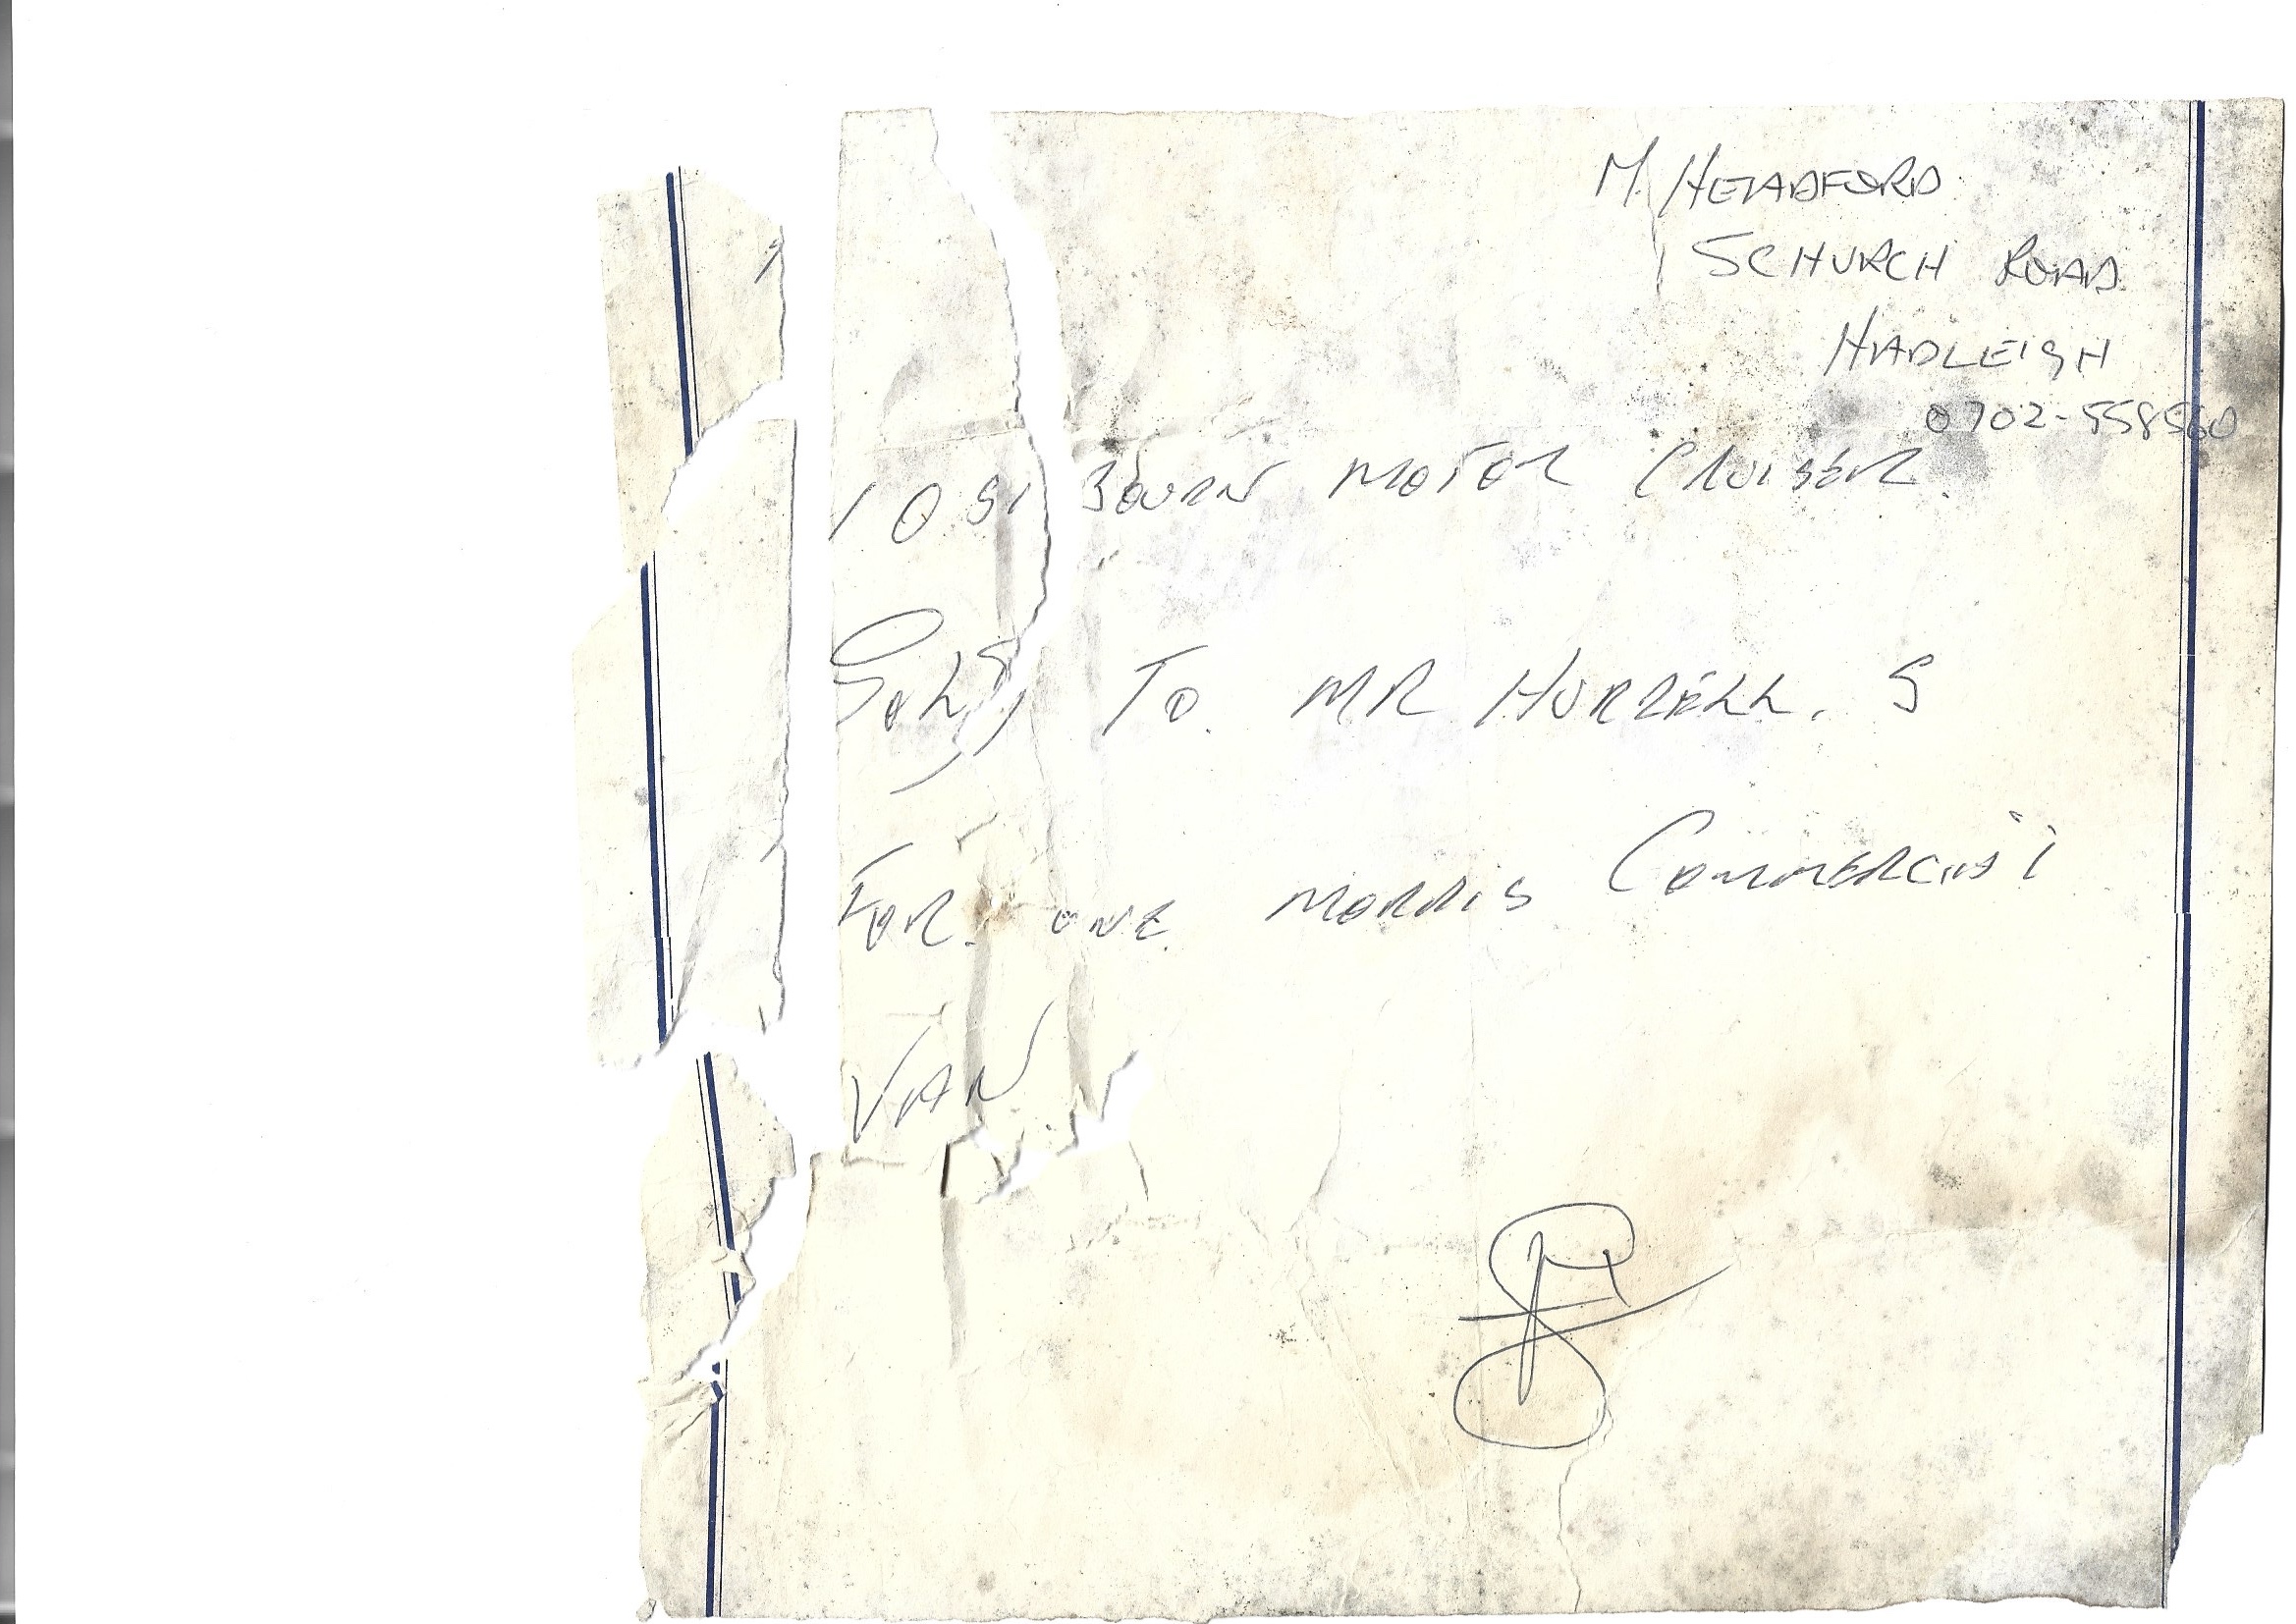 M. HEADFORD
5 CHURCH ROAD
HADLEIGH
0702-558560
MOTOR CRUISER.
SOLD TO. MR HURRELL. S
FOR. ONE MORRIS COMMERCIAL
VAN